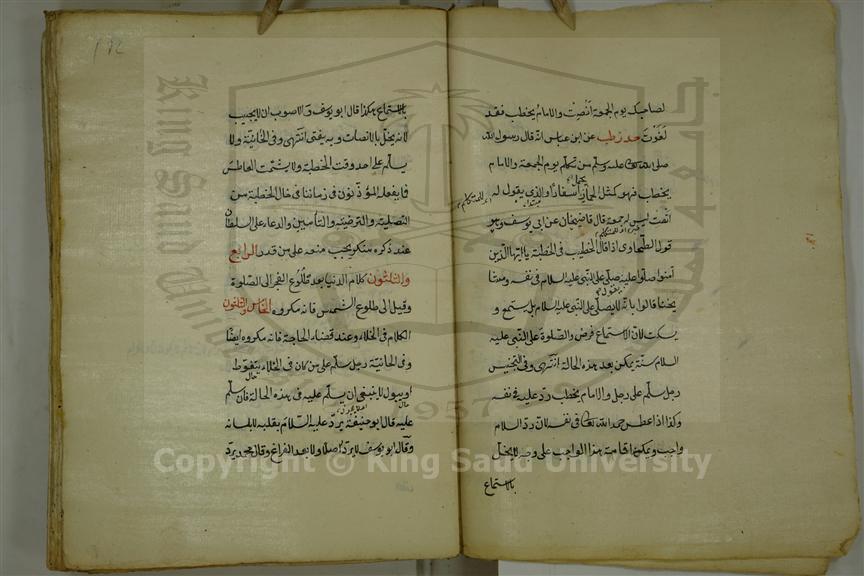 لصاحبك يوم الجمعة أنصت والامام يخطب فقد
لغوت حد زطب عن ابن عباس انه قال رسول الله
صلى الله عليه وسلم من تكلم يوم الجمعة والامام
يخطب فهو كمثل الحمار يحمل اسفارا والذي يقول له
انصت ليس له جمعة قال قاضيخان عن ابي يوسف وهو
قول الطحاوى اذا قال الخطيب فى الخطبة يا ايها الذين
آمنوا صلوا عليه صلى على النبى عليه السلام فى نفسه ومشا
يخنا قالوا بانه لا يصلى على النبى عليه السلام بل يستمع و
يسكت لان الاستماع فرض والصلوة على النبى عليه
السلام سنة يمكن بعد هذه الحالة انتهى وفى التجنيس
رجل سلم على رجل والامام يخطب رد عليه فى نفسه
وكذا اذا عطس حمد الله تعالى فى نفسه لان رد السلام
واجب ويمكن اقامة هذا الواجب على وجه لا يخل
بالاستماع
بالاستماع هكذا قال ابو يوسف والاصوب ان لا يجيب
لانه يخل بالانصات وبه يفتى انتهى وفى الخانية ولا
يسلم على احد وقت الخطبة ولا يشمت العاطس
فما يفعله المؤذنون فى زماننا فى حال الخطبة من
التصلية والترضية والتأمين والدعاء على السلطان
عند ذكره منكر يجب منعه على من قدر الرابع
والثلثون كلام الدنيا بعد طلوع الفجر الى الصلوة
وقيل الى طلوع الشمس فانه مكروه الخامس والثلثون
الكلام فى الخلاء وعند قضاء الحاجة فانه مكروه ايضا
وفى الخانية رجل سلم على من كان فى الخلاء يتغوط
او يبول لا ينبغى ان يسلم عليه فى هذه الحالة فان سلم
عليه قال ابو حنيفة يرد عليه السلام بقلبه لا بلسانه
وقال ابو يوسف لا يرد اصلا ولا بعد الفراغ وقال محمد يرد
King Saud University
1957
Copyright © King Saud University